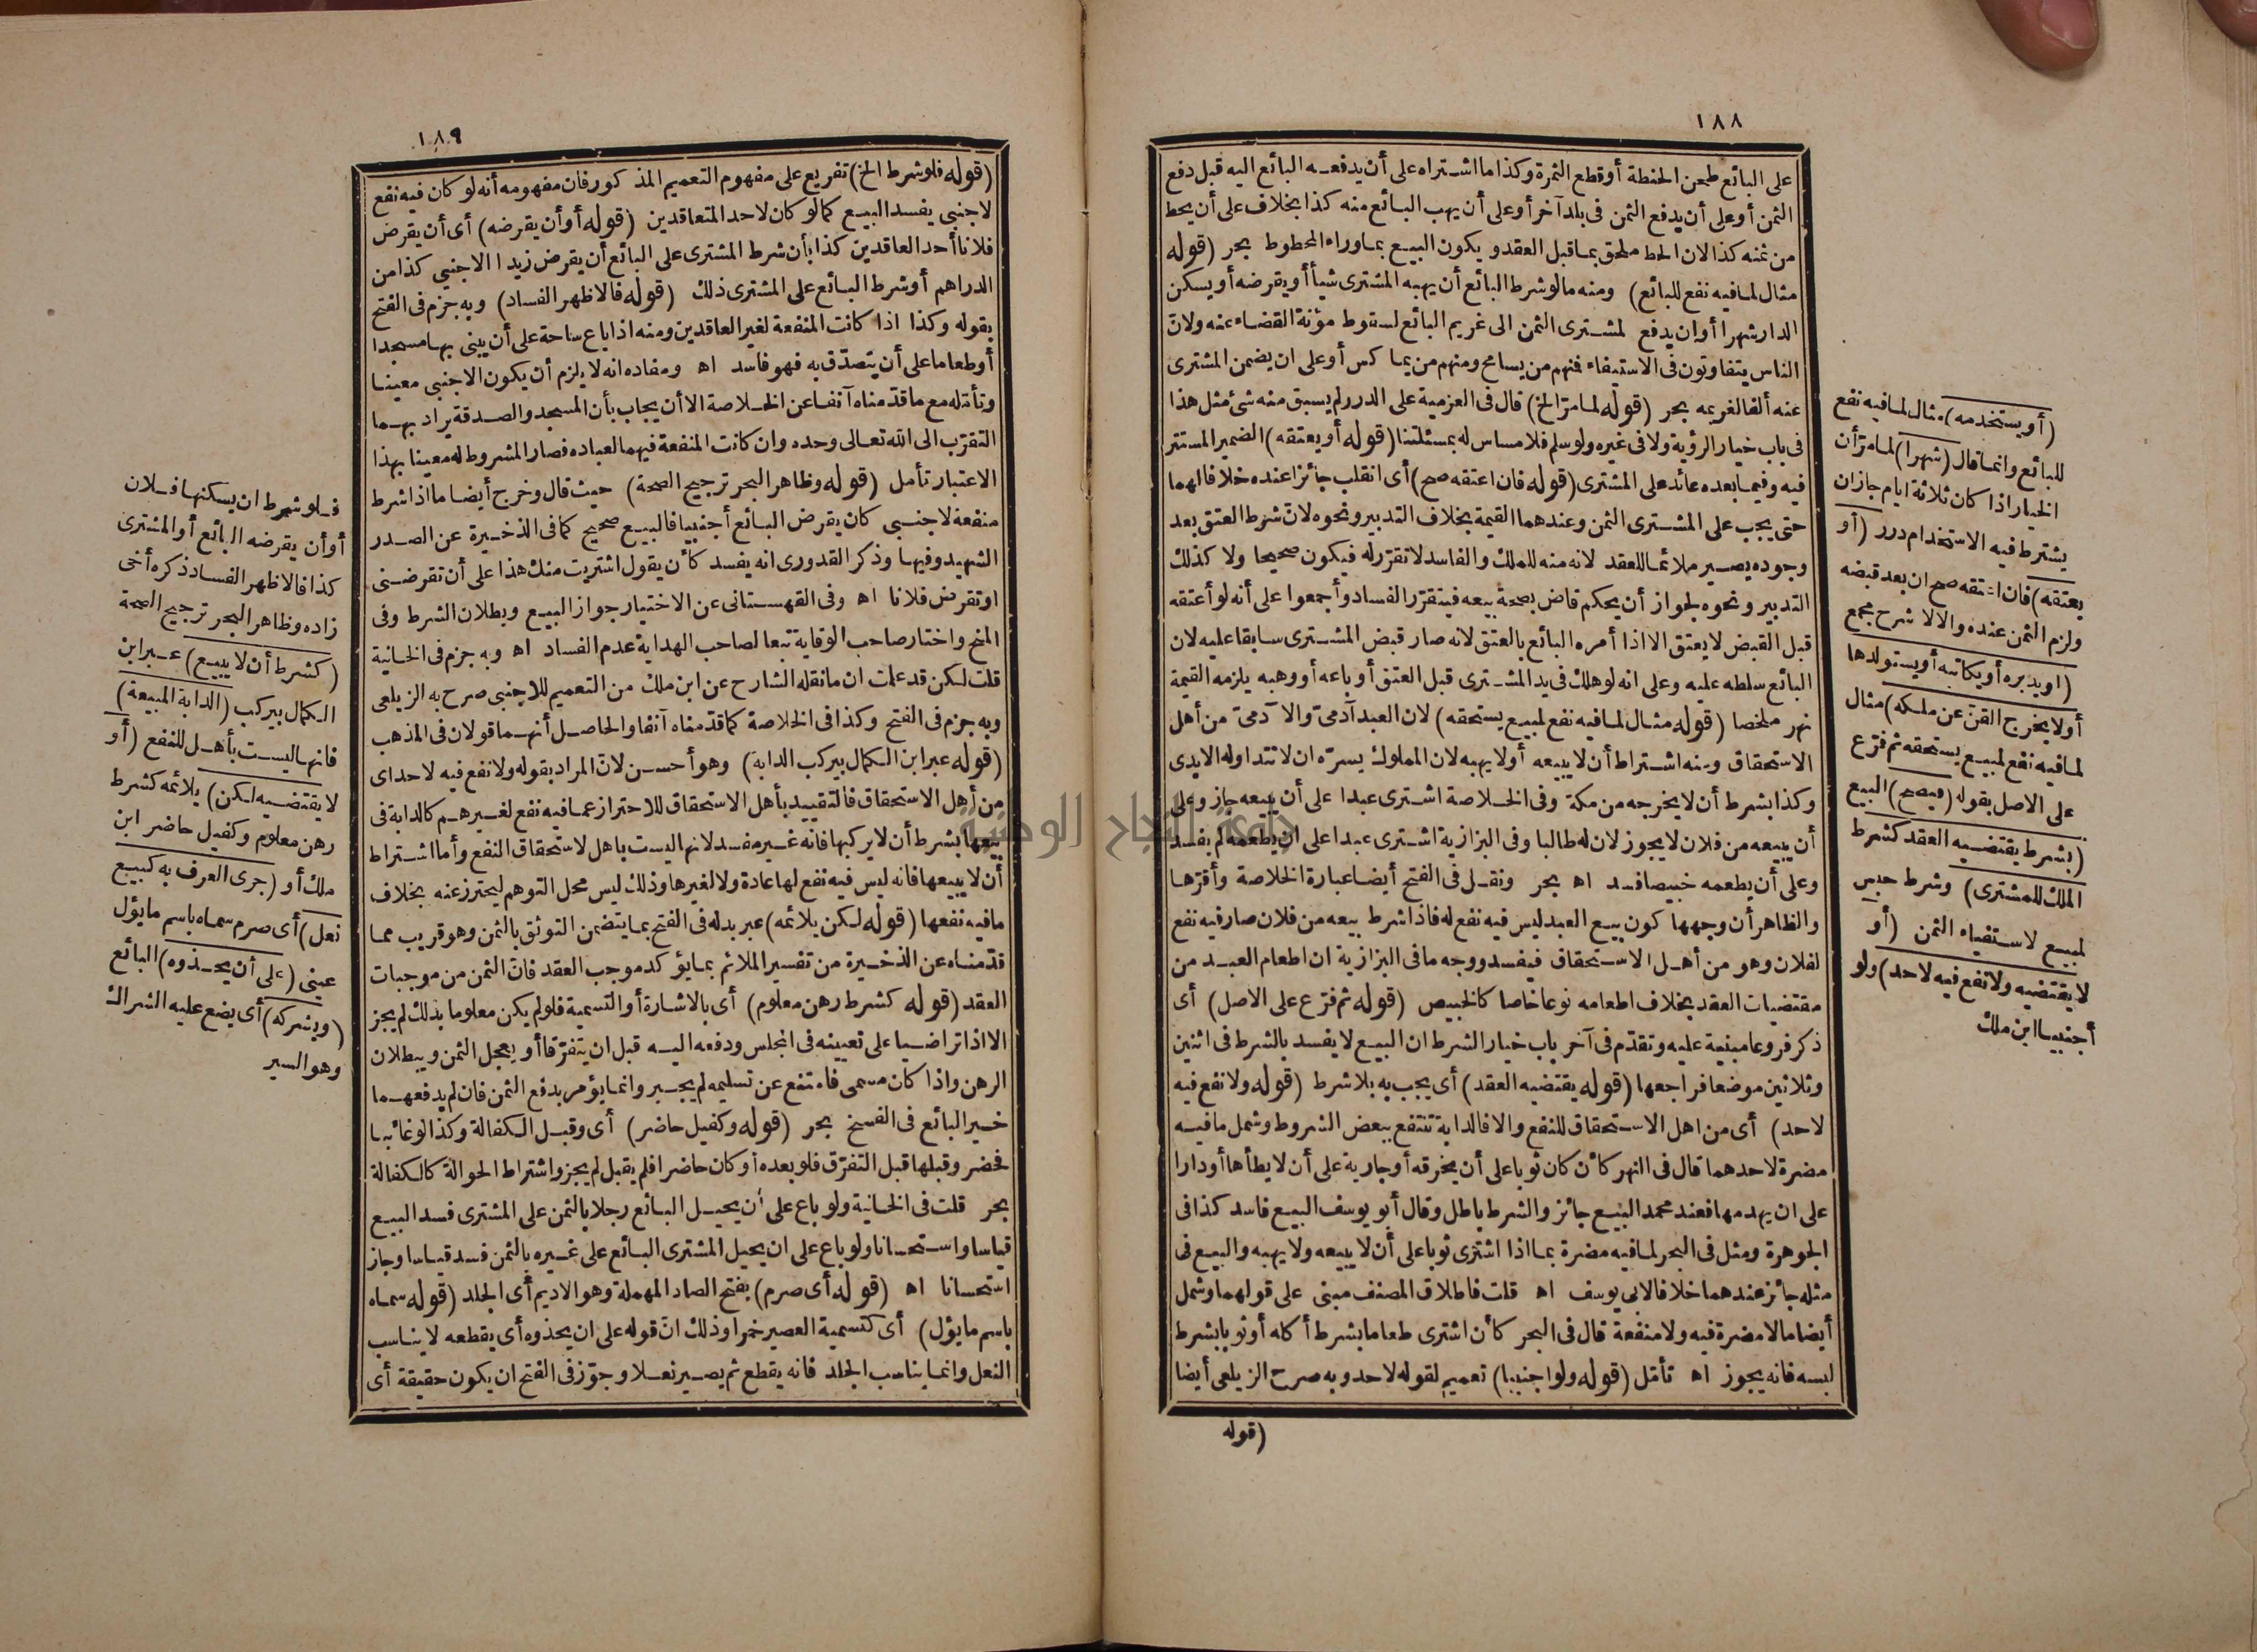 ١٨٨
على البائع طحن الحنطة أوقطع الثمرة وكذا ما اشتراه على أن يدفعه البائع اليه قبل دفع
الثمن أو على أن يدفع الثمن فى بلد آخر أو على أن يهب البائع منه كذا بخلاف على أن يحط
من ثمنه كذا لان الحط ملحق بما قبل العقد ويكون البيع بما وراء المحطوط بحر (قوله
مثال لما فيه نفع للبائع) ومنه ما لو شرط البائع أن يهبه المشترى شيأ أو يقرضه أو يسكن
الدار شهرا أو ان يدفع لمشترى الثمن الى غريم البائع لسقوط مؤنة القضاء عنه ولان
الناس يتفاوتون فى الاستيفاء فنهم من يسامح ومنهم من يماكس أو على ان يضمن المشترى
عنه ألفا لغريمه بحر (قوله لما مرّ الخ) قال فى العزمية على الدرر لم يسبق منه شئ مثل هذا
فى باب خيار الرؤية ولا فى غيره ولو سلم فلا مساس له بمسئلتنا (قوله أو يعتقه) الضمير المستتر
فيه وفيما بعده عائد على المشترى (قوله فان اعتقه صح) أى انقلب جائزا عنده خلافا لهما
حتى يجب على المشترى الثمن وعندهما القيمة بخلاف التدبير ونحوه لانّ شرط العتق بعد
وجوده يصير ملائما للعقد لانه منه للملك والفاسد لا تقرّر له فيكون صحيحا ولا كذلك
التدبير ونحوه لجواز أن يحكم قاض بصحة بيعه فيتقرّر الفساد وأجمعوا على أنه لو أعتقه
قبل القبض لا يعتق الا اذا أمره البائع بالعتق لانه صار قبض المشترى سابقا عليه لان
البائع سلطه عليه وعلى انه لو هلك فى يد المشترى قبل العتق أو باعه أو وهبه يلزمه القيمة
نهر ملخصا (قوله مثال لما فيه نفع لمبيع يستحقه) لان العبد آدمىّ والا آدمىّ من أهل
الاستحقاق ومنه اشتراط أن لا يبيعه أو لا يهبه لان المملوك يسرّه ان لا تتداوله الايدى
وكذا بشرط أن لا يخرجه من مكة وفى الخلاصة اشترى عبدا على أن يبيعه جاز وعلى
أن يبيعه من فلان لا يجوز لان له طالبا وفى البزازية اشترى عبدا على ان يطعمه لم يفسد
وعلى أن يطعمه خبيصا فسد اه بحر ونقل فى الفتح أيضا عبارة الخلاصة وأقرّها
والظاهر أن وجهها كون بيع العبد ليس فيه نفع له فاذا شرط بيعه من فلان صار فيه نفع
لفلان وهو من أهل الاستحقاق فيفسد ووجه ما فى البزازية ان اطعام العبد من
مقتضيات العقد بخلاف اطعامه نوعا خاصا كالخبيص (قوله ثم فرّع على الاصل) أى
ذكر فروعا مبنية عليه وتقدّم فى آخر باب خيار الشرط ان البيع لا يفسد بالشرط فى اثنين
وثلاثين موضعا فراجعها (قوله يقتضيه العقد) أى يجب به بلا شرط (قوله ولا نفع فيه
لاحد) أى من اهل الاستحقاق للنفع والا فالدابة تنتفع ببعض الشروط وشمل ما فيه
مضرة لاحدهما قال فى النهر كأن كان ثوبا على أن يخرقه أو جارية على أن لا يطأها أو دارا
على ان يهدمها فعند محمد البيع جائز والشرط باطل وقال أبو يوسف البيع فاسد كذا فى
الجوهرة ومثل فى البحر لما فيه مضرة بما اذا اشترى ثوبا على أن لا يبيعه ولا يهبه والبيع فى
مثله جائز عندهما خلافا لابى يوسف اه قلت فاطلاق المصنف مبنى على قولهما وشمل
أيضا ما لا مضرة فيه ولا منفعة قال فى البحر كأن اشترى طعاما بشرط أكله أو ثوبا بشرط
لبسه فانه يجوز اه تأمّل (قوله ولو اجنبيا) تعميم لقوله لاحد وبه صرح الزيلعى أيضا
(قوله
(أو يستخدمه) مثال لما فيه نفع
للبائع وانما قال (شهرا) لما مرّ أن
الخيار اذا كان ثلاثة ايام جاز ان
يشترط فيه الاستخدام درر (أو
يعتقه) فان اعتقه صح ان بعد قبضه
ولزم الثمن عنده والا لا شرح مجمع
(او يدبره أو يكاتبه أو يستولدها
أو لا يخرج القنّ عن ملكه) مثال
لما فيه نفع لمبيع يستحقه ثم فرّع
على الاصل بقوله (فيصح) البيع
(بشرط يقتضيه العقد كشرط
الملك للمشترى) وشرط حبس
لمبيع لاستيفاء الثمن (أو
لا يقتضيه ولا نفع فيه لاحد) ولو
أجنبيا ابن ملك
١٨٩
(قوله فلو شرط الخ) تفريع على مفهوم التعميم المذكور فان مفهومه أنه لو كان فيه نفع
لاجنبى يفسد البيع كما لو كان لاحد المتعاقدين (قوله أو أن يقرضه) أى أن يقرض
فلانا أحد العاقدين كذا بأن شرط المشترى على البائع أن يقرض زيدا الاجنبى كذا من
الدراهم أو شرط البائع على المشترى ذلك (قوله فالاظهر الفساد) وبه جزم فى الفتح
بقوله وكذا اذا كانت المنفعة لغير العاقدين ومنه اذا باع ساحة على أن يبنى بها مسجدا
أو طعاما على أن يتصدّق به فهو فاسد اه ومفاده انه لا يلزم أن يكون الاجنبى معينا
وتأمّله مع ما قدّمناه آنفا عن الخلاصة الا أن يجاب بأن المسجد والصدقة يراد بهما
التقرّب الى الله تعالى وحده وان كانت المنفعة فيهما لعباده فصار المشروط له معينا بهذا
الاعتبار تأمل (قوله وظاهر البحر ترجيح الصحة) حيث قال وخرج أيضا ما اذا شرط
منفعة لاجنبى كان يقرض البائع أجنبيا فالبيع صحيح كما فى الذخيرة عن الصدر
الشهيد وفيها وذكر القدورى انه يفسد كأن يقول اشتريت منك هذا على أن تقرضنى
او تقرض فلانا اه وفى القهستانى عن الاختيار جواز البيع وبطلان الشرط وفى
المنح واختار صاحب الوقاية تبعا لصاحب الهداية عدم الفساد اه وبه جزم فى الخانية
قلت لكن قد علمت ان ما نقله الشارح عن ابن ملك من التعميم للاجنبى صرح به الزيلعى
وبه جزم فى الفتح وكذا فى الخلاصة كما قدّمناه آنفا والحاصل أنهما قولان فى المذهب
(قوله عبر ابن الكمال بيركب الدابة) وهو أحسن لانّ المراد بقوله ولا نفع فيه لاحد اى
من أهل الاستحقاق فالتقييد بأهل الاستحقاق للاحتراز عما فيه نفع لغيرهم كالدابة فى
بيعها بشرط أن لا يركبها فانه غير مفسد لانها ليست باهل لاستحقاق النفع وأما اشتراط
أن لا يبيعها فانه ليس فيه نفع لها عادة ولا لغيرها وذلك ليس محل التوهم ليحترز عنه بخلاف
ما فيه نفعها (قوله لكن يلائمه) عبر بدله فى الفتح بما يتضمن التوثق بالثمن وهو قريب مما
قدّمناه عن الذخيرة من تفسير الملائم بما يؤكد موجب العقد فانّ الثمن من موجبات
العقد (قوله كشرط رهن معلوم) أى بالاشارة أو التسمية فلو لم يكن معلوما بذلك لم يجز
الا اذا تراضيا على تعيينه فى المجلس ودفعه اليه قبل ان يتفرّقا أو يعجل الثمن ويبطلان
الرهن واذا كان مسمى فامتنع عن تسليمه لم يجبر وانما يؤمر بدفع الثمن فان لم يدفعهما
خير البائع فى الفسخ بحر (قوله وكفيل حاضر) أى وقبل الكفالة وكذا لو غائبا
فحضر وقبلها قبل التفرّق فلو بعده أو كان حاضرا فلم يقبل لم يجز واشتراط الحوالة كالكفالة
بحر قلت فى الخانية ولو باع على أن يحيل البائع رجلا بالثمن على المشترى فسد البيع
قياسا واستحسانا ولو باع على ان يحيل المشترى البائع على غيره بالثمن فسد قياسا وجاز
استحسانا اه (قوله أى صرم) بفتح الصاد المهملة وهو الاديم أى الجلد (قوله سماه
باسم ما يؤل) أى كتسمية العصير خمرا وذلك انّ قوله على ان يحذوه أى يقطعه لا يناسب
النعل وانما يناسب الجلد فانه يقطع ثم يصير نعلا وجوّز فى الفتح ان يكون حقيقة أى
فلو شرط ان يسكنها فلان
أو أن يقرضه البائع أو المشترى
كذا فالاظهر الفساد ذكره أخى
زاده وظاهر البحر ترجيح الصحة
(كشرط أن لا يبيع) عبر ابن
الكمال بيركب (الدابة المبيعة)
فانها ليست بأهل للنفع (أو
لا يقتضيه لكن) يلائمه كشرط
رهن معلوم وكفيل حاضر ابن
ملك أو (جرى العرف به كبيع
نعل) أى صرم سماه باسم ما يؤل
عينى (على أن يحذوه) البائع
(ويشركه) أى يضع عليه الشراك
وهو السير